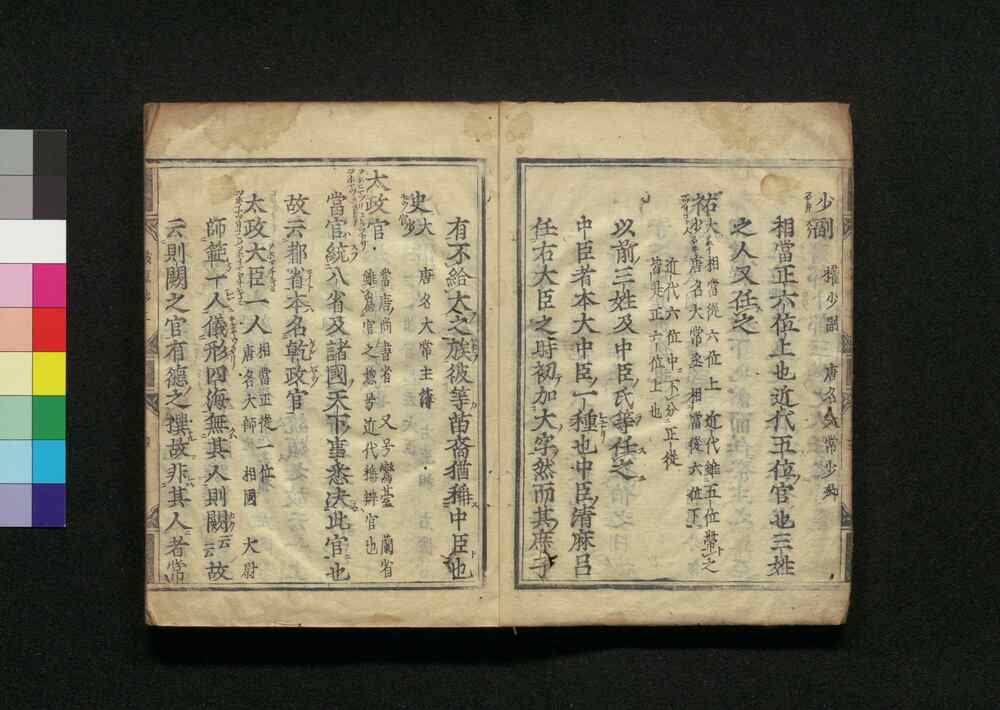 少副 權少副 唐名大常少卿
相當正六位上也近代五位官也三姓
之人又任之
祐 大 相當從六位上 近代雖五位幣之
少 唐名大常丞 相當從六位下
近代六位中下分正從
皆是正六位上也
以前三姓及中臣氏等任之
中臣者本大中臣一種也中臣清麻呂
任右大臣之時初加大字然而其庶子
有不給大之族彼等苗裔猶稱中臣也
史 大 少 唐名大常主簿
太政官 當唐尚書省 又号鸞臺 蘭省
雖爲官之惣号近代稱辨官也
當官統八省及諸國天下事悉決此官也
故云都省本名乾政官
太政大臣一人 相當正從一位
唐名大師 相國 大尉
師範一人儀形四海無其人則闕云故
云則闕之官有德之撰故非其人者常